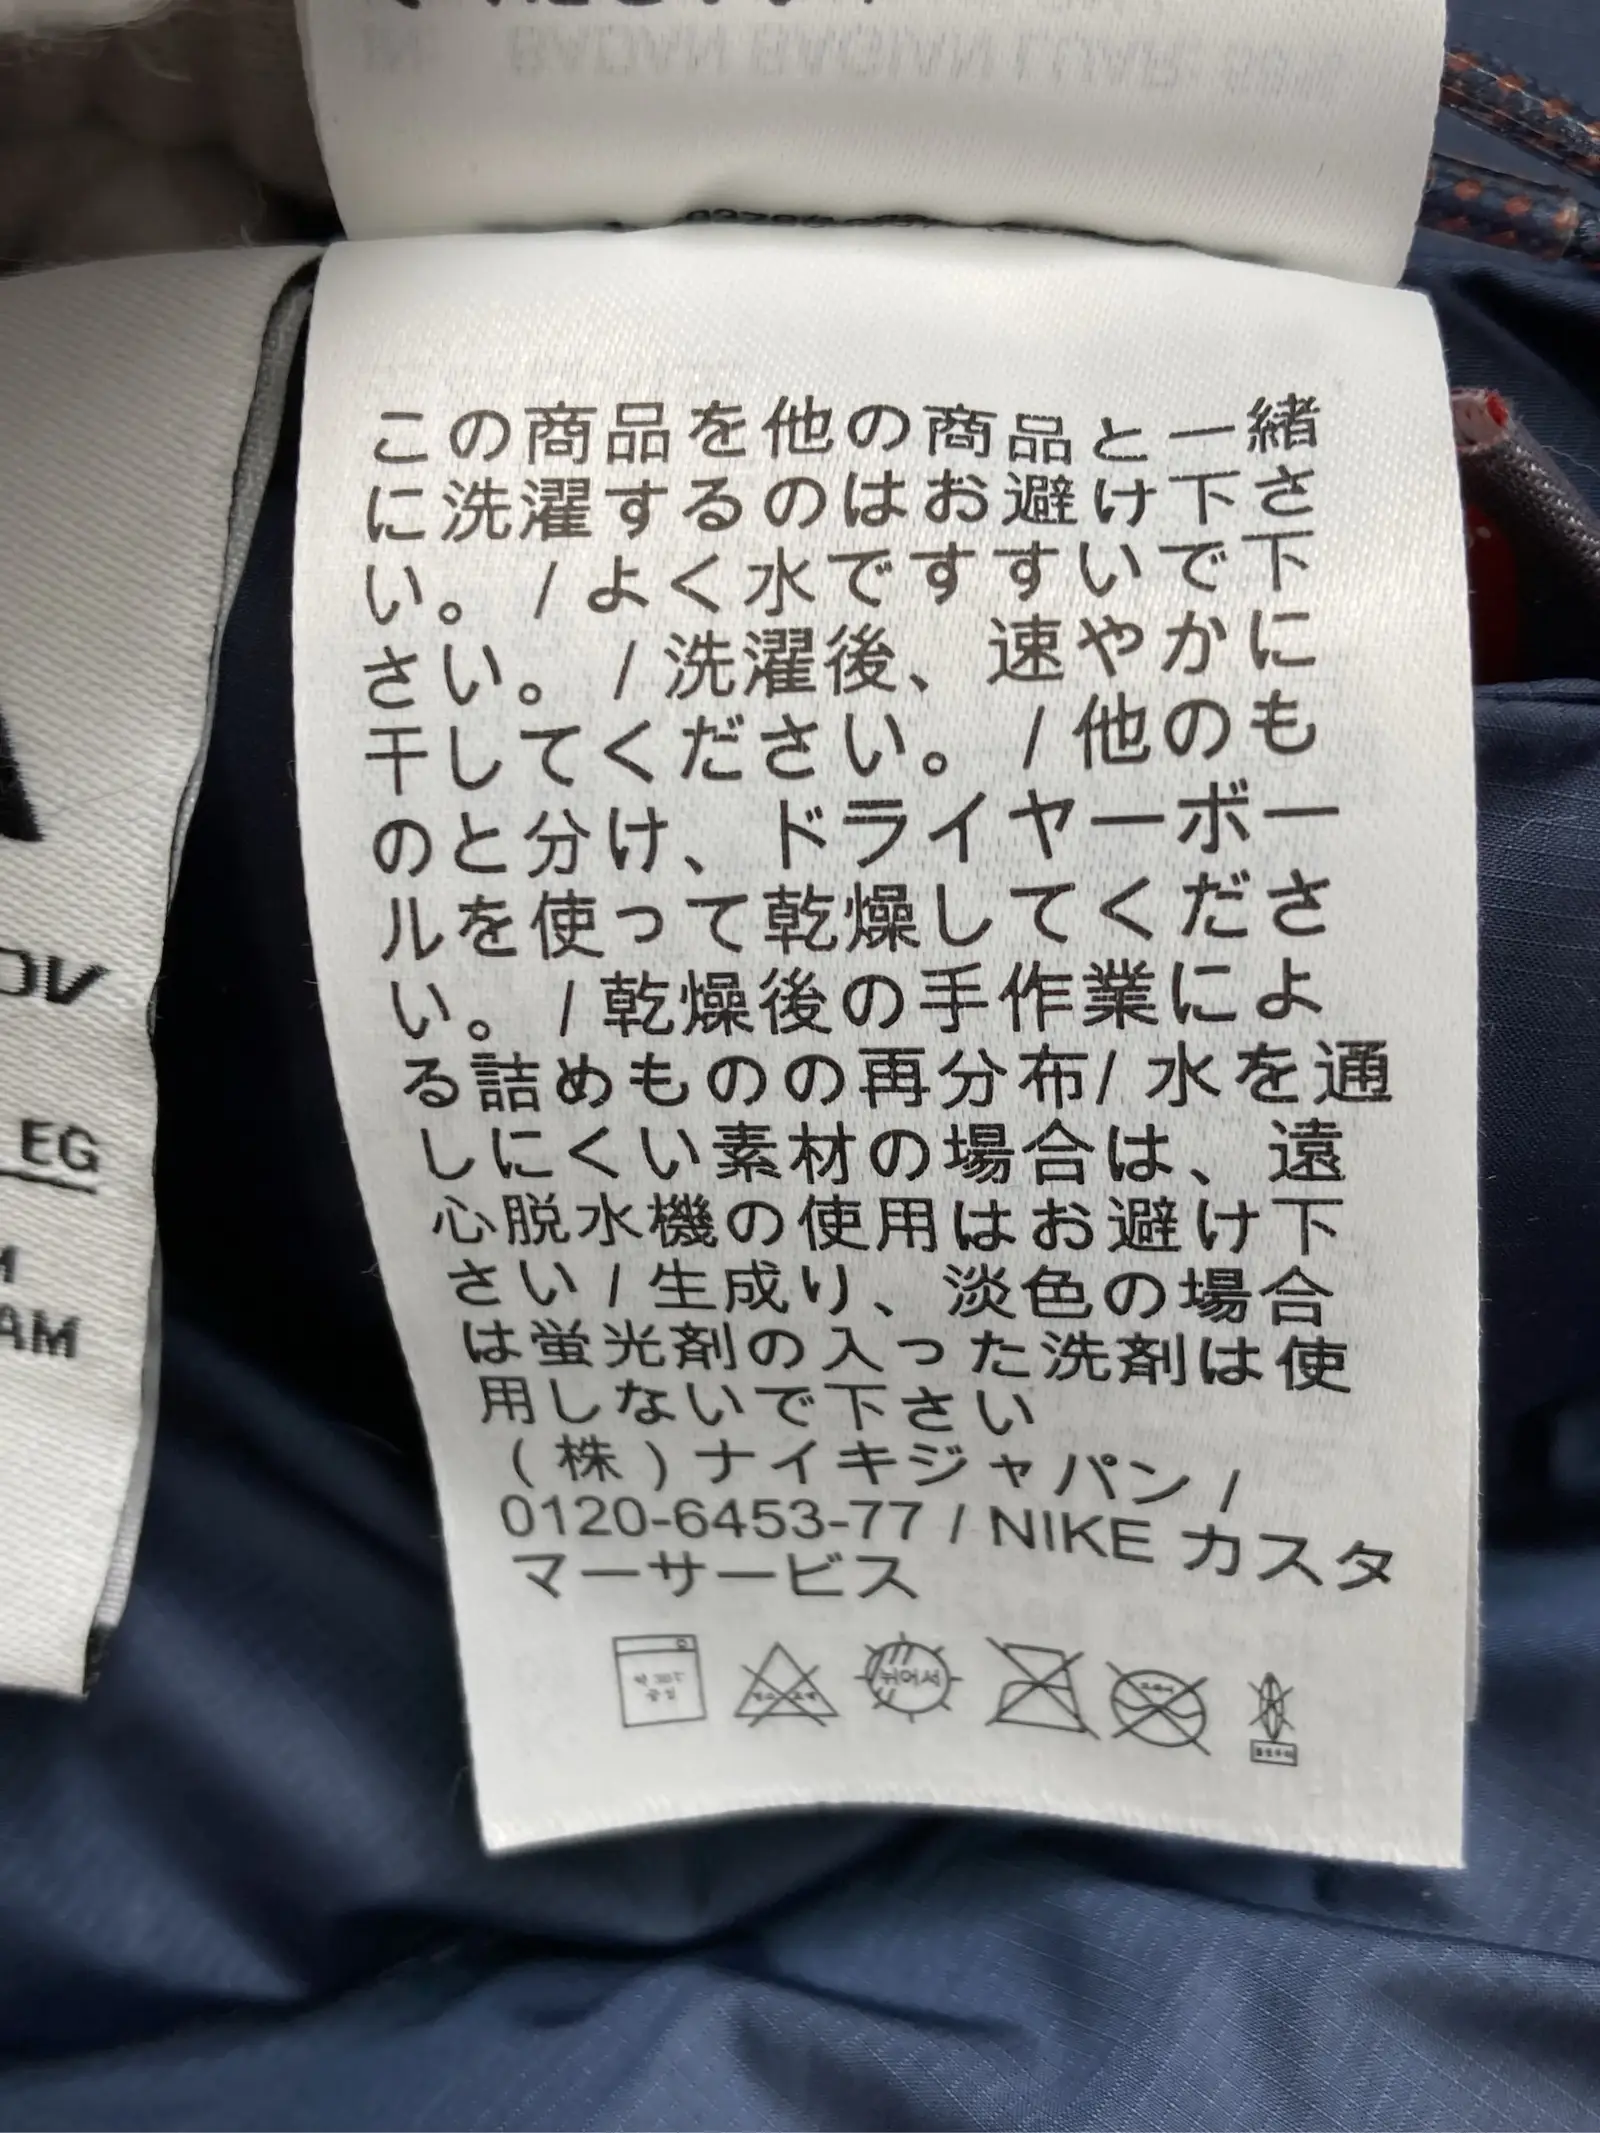 IN BADAN BAGIAN LUAR:
この商品を他の商品と一緒
に洗濯するのはお避け下さ
い。 / よく水ですすいで下
さい。 / 洗濯後、速やかに
干してください。 / 他のも
のと分け、ドライヤーボー
ルを使って乾燥してくださ
い。 / 乾燥後の手作業によ
る詰めものの再分布/ 水を通
しにくい素材の場合は、遠
心脱水機の使用はお避け下
さい / 生成り、淡色の場合
は蛍光剤の入った洗剤は使
用しないで下さい
(株)ナイキジャパン /
0120-6453-77 / NIKE カスタ
マーサービス
뉘어서
EG
AM